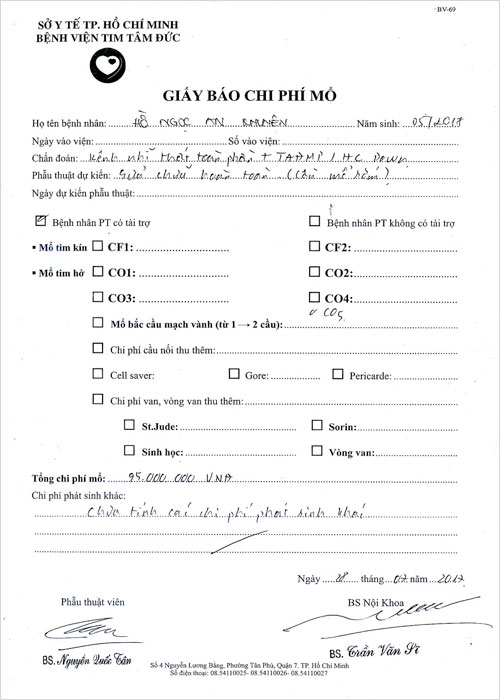 BV-69
SỞ Y TẾ TP. HỒ CHÍ MINH
BỆNH VIỆN TIM TÂM ĐỨC
GIẤY BÁO CHI PHÍ MỔ
Họ tên bệnh nhân: HỒ NGỌC AN KHUYÊN Năm sinh: 05/2017
Ngày vào viện: Số vào viện:
Chẩn đoán: Kênh nhĩ thất toàn phần + TAĐMP / HC Down
Phẫu thuật dự kiến: Sửa chữa hoàn toàn (Cần mổ sớm)
Ngày dự kiến phẫu thuật:
Bệnh nhân PT có tài trợ Bệnh nhân PT không có tài trợ
▪ Mổ tim kín CF1: CF2:
▪ Mổ tim hở CO1: CO2:
CO3: CO4:
v CO5
Mổ bắc cầu mạch vành (từ 1 → 2 cầu):
Chi phí cầu nối thu thêm:
Cell saver: Gore: Pericarde:
Chi phí van, vòng van thu thêm:
St.Jude: Sorin:
Sinh học: Vòng van:
Tổng chi phí mổ: 95.000.000 VNĐ
Chi phí phát sinh khác:
Chưa tính các chi phí phát sinh khác
Ngày 28 tháng 07 năm 2017
Phẫu thuật viên BS Nội Khoa
BS. Nguyễn Quốc Tân BS. Trần Văn Sĩ
Số 4 Nguyễn Lương Bằng, Phường Tân Phú, Quận 7. TP. Hồ Chí Minh
Số điện thoại: 08.54110025- 08.54110026- 08.54110027